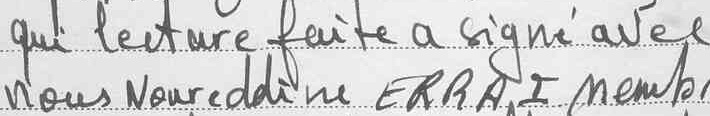 qui lecture faite a signé avec
nous Noureddine ERRAI